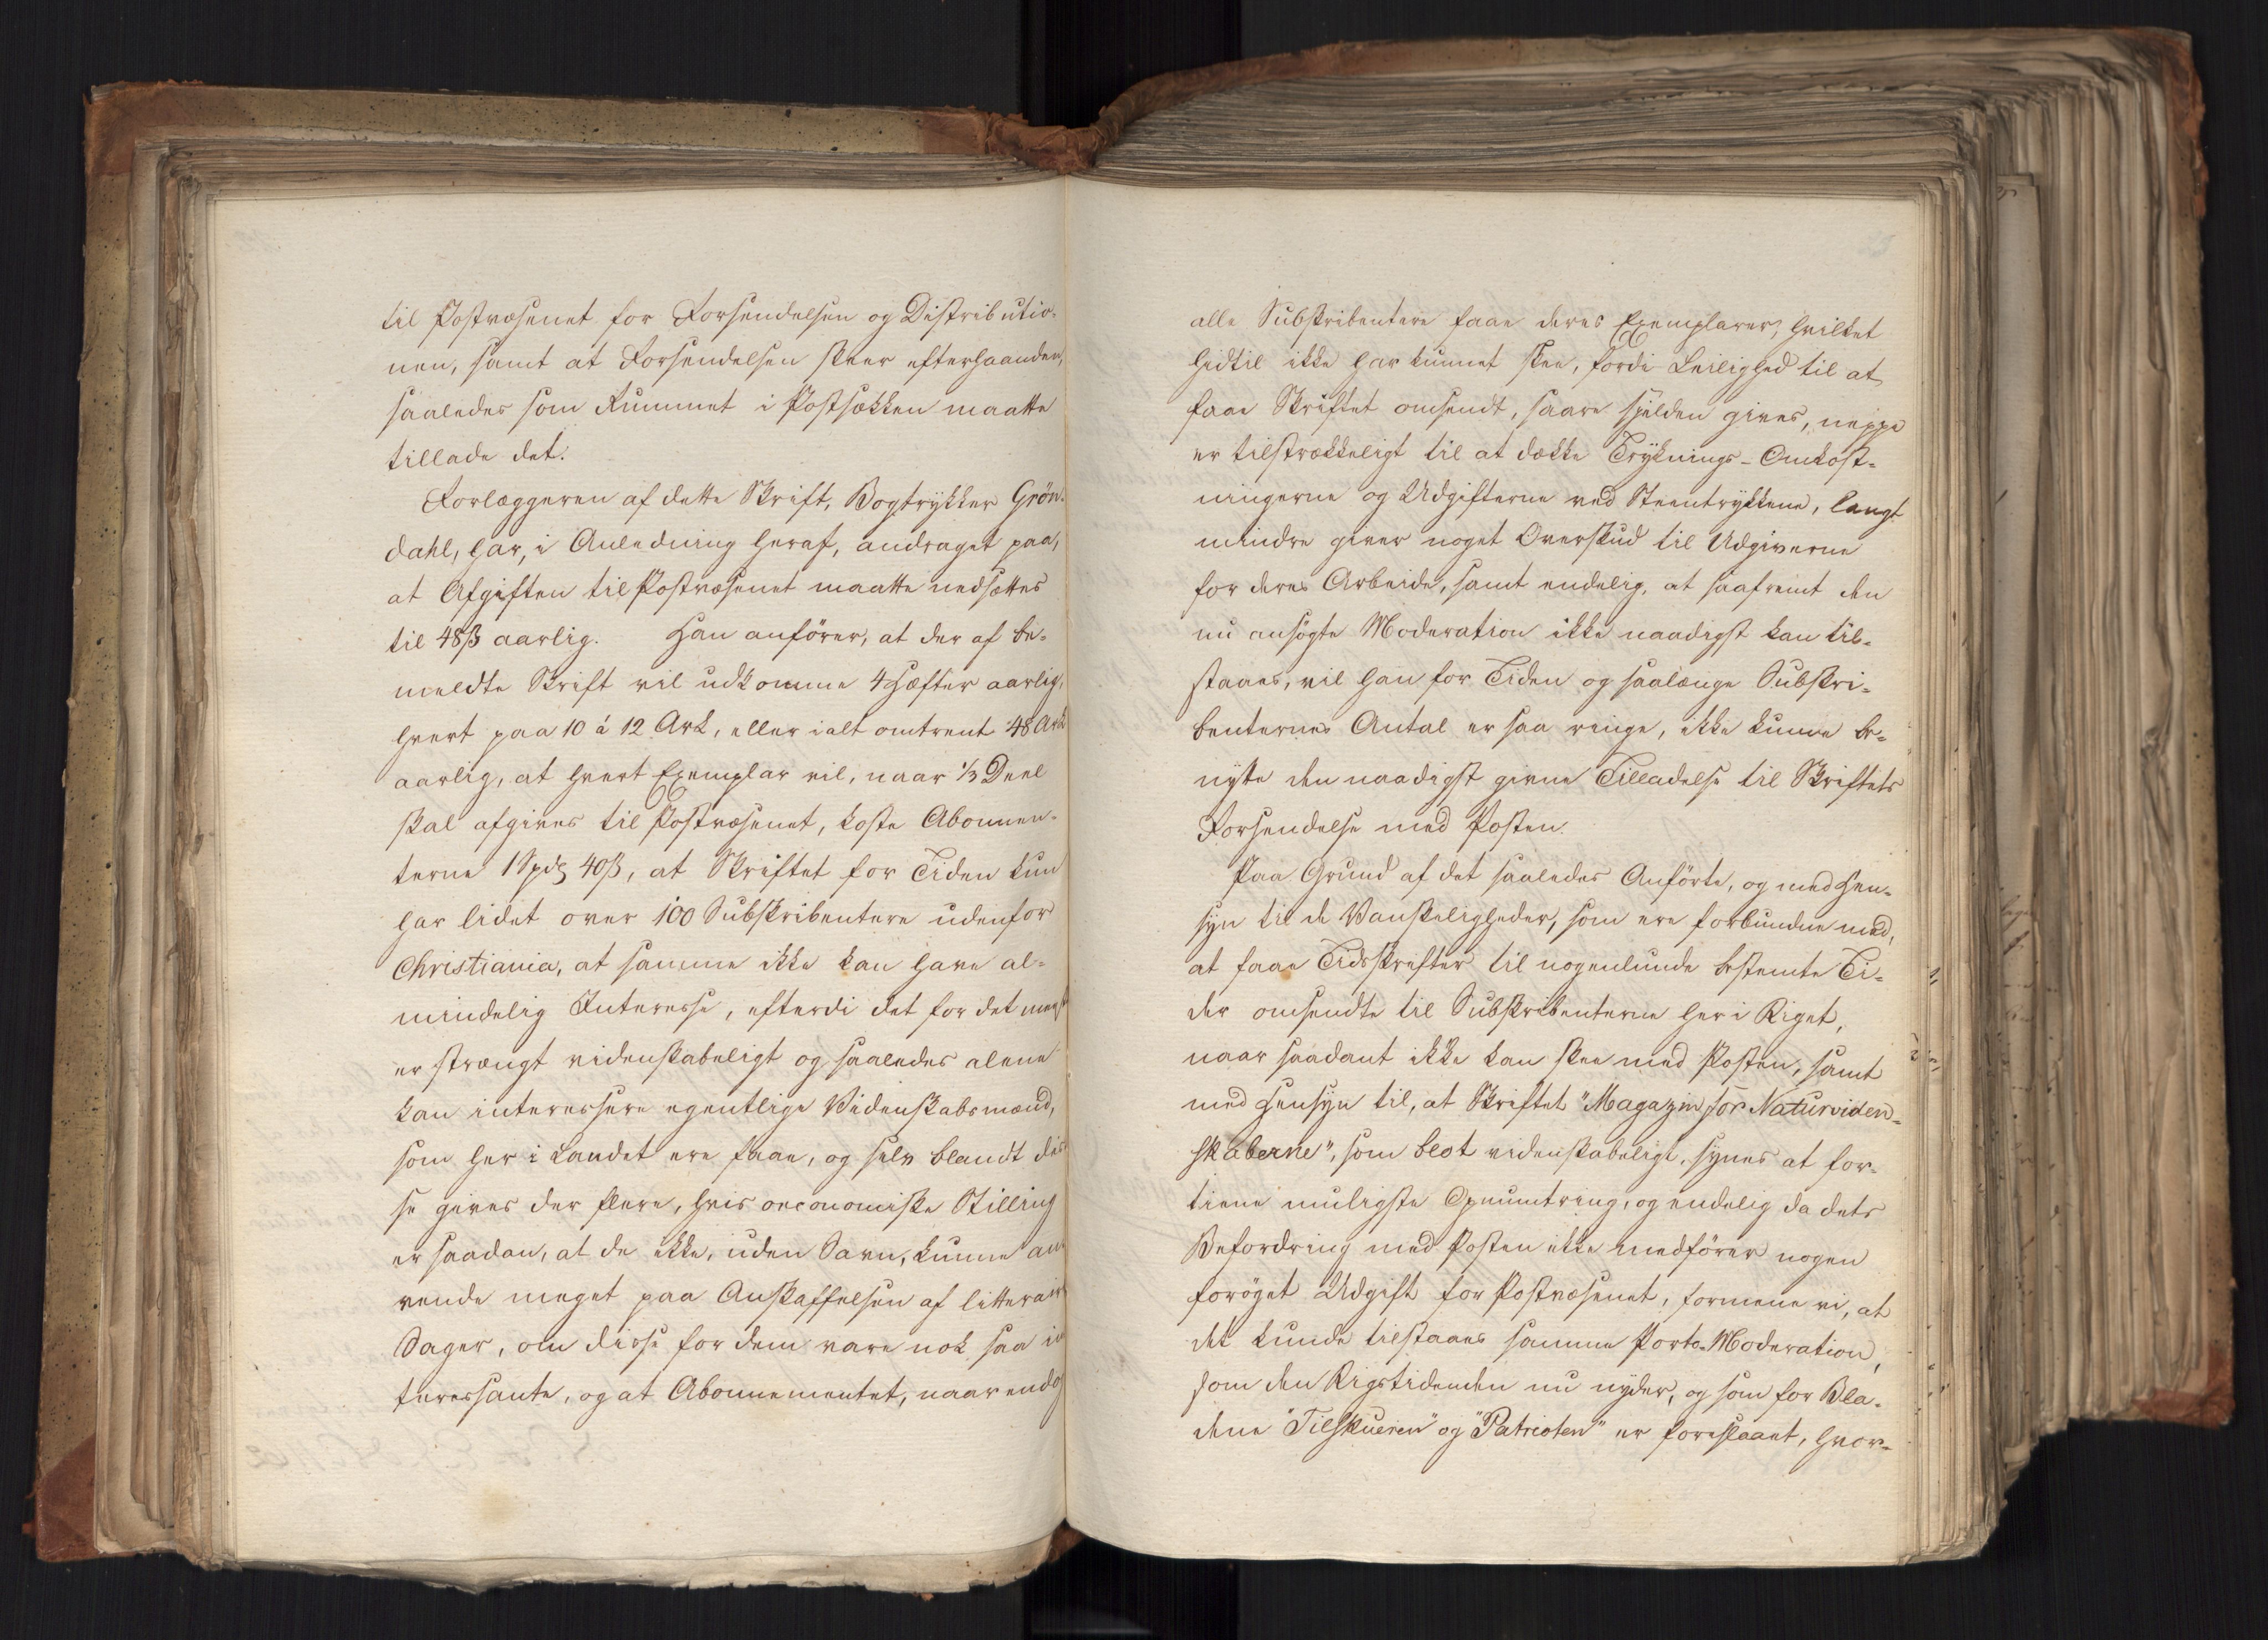 til Postvæsenet for Forsendelsen og Distributio-
nen, samt at Forsendelsen skeer efterhaanden,
saaledes som Rummet i Postsækken maatte
tillade det.
Forlæggeren af dette Skrift, Bogtrykker Grön-
dahl, har, i Anledning heraf, andraget paa,
at Afgiften til Postvæsenet maatte nedsættes
til 48 ß aarlig. Han anförer, at der af be-
meldte Skrift vil udkomme 4 Hæfter aarlig,
hvert paa 10 à 12 Ark, eller ialt omtrent 48 Ark
aarlig, at hvert Exemplar vil, naar 1/3 Deel
skal afgives til Postvæsenet, koste Abonnen-
terne 1 Spd 40 ß, at Skriftet for Tiden kun
har lidet over 100 Subskribentere udenfor
Christiania, at samme ikke kan have al-
mindelig Interesse, efterdi det for det meste
er strængt videnskabeligt og saaledes alene
kan interessere egentlige Videnskabsmænd,
som her i Landet ere faae, og selv blandt dis-
se gives der flere, hvis oeconomiske Stilling
er saadan, at de ikke, uden Savn, kunne an-
vende meget paa Anskaffelsen af litteraire
Sager, om disse for dem vare nok saa in-
teressante, og at Abonnementet, naar endog
alle Subskribentere faae deres Exemplarer, hvilket
hidtil ikke har kunnet skee, fordi Leilighed til at
faae Skriftet omsendt, saare sjelden gives, neppe
er tilstrækkeligt til at dække Tryknings-Omkost-
ningerne og Udgifterne ved Steentrykkene, langt
mindre giver noget Overskud til Udgiverne
for deres Arbeide, samt endelig, at saafremt den
nu ansögte Moderation ikke naadigst kan til-
staaes, vil han for Tiden og saalænge Subskri-
benternes Antal er saa ringe, ikke kunne be-
nytte den naadigst givne Tilladelse til Skriftets
Forsendelse med Posten.
Paa Grund af det saaledes Anförte, og med Hen-
syn til de Vanskeligheder, som ere forbundne med,
at faae Tidsskrifter til nogenlunde bestemte Ti-
der omsendte til Subskribenterne her i Riget,
naar saadant ikke kan skee med Posten, samt
med Hensyn til, at Skriftet "Magazin for Naturviden-
skaberne", som blot videnskabeligt, synes at for-
tiene muligste Opmuntring, og endelig da dets
Befordring med Posten ikke medförer nogen
foröget Udgift for Postvæsenet, formene vi, at
det kunde tilstaaes samme Porto-Moderation,
som den Rigstidenden nu nyder, og som for Bla-
dene "Tilskueren" og "Patrioten" er foreslaaet, hvor-